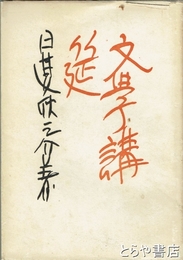 文學講
筵
日夏耿之介著
とらや書店